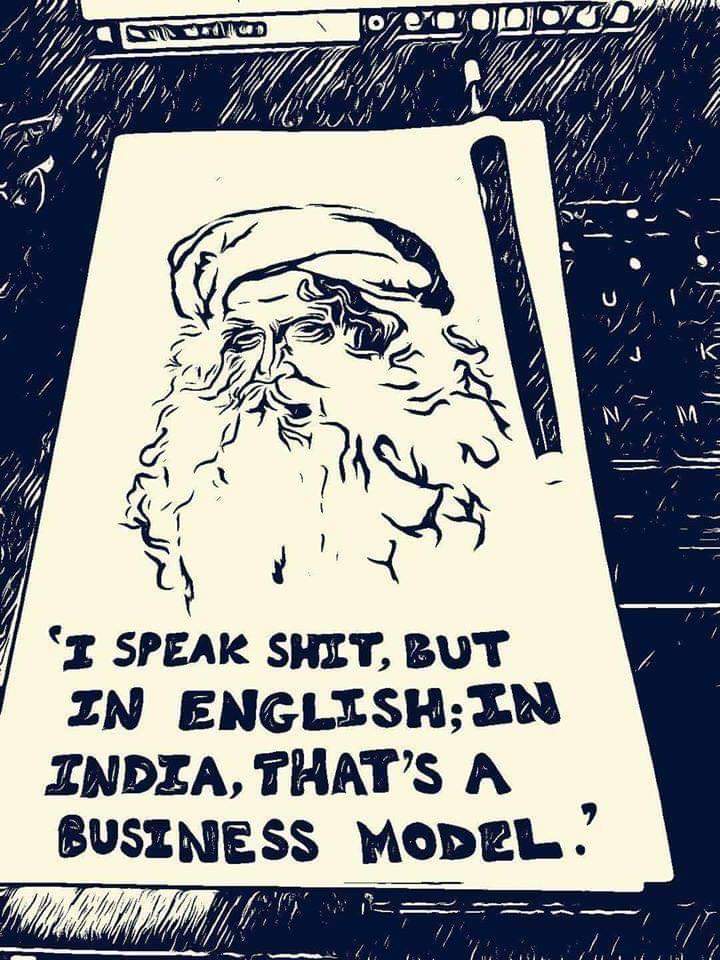 'I SPEAK SHIT, BUT
IN ENGLISH; IN
INDIA, THAT'S A
BUSINESS MODEL.'
U I
J K
N M